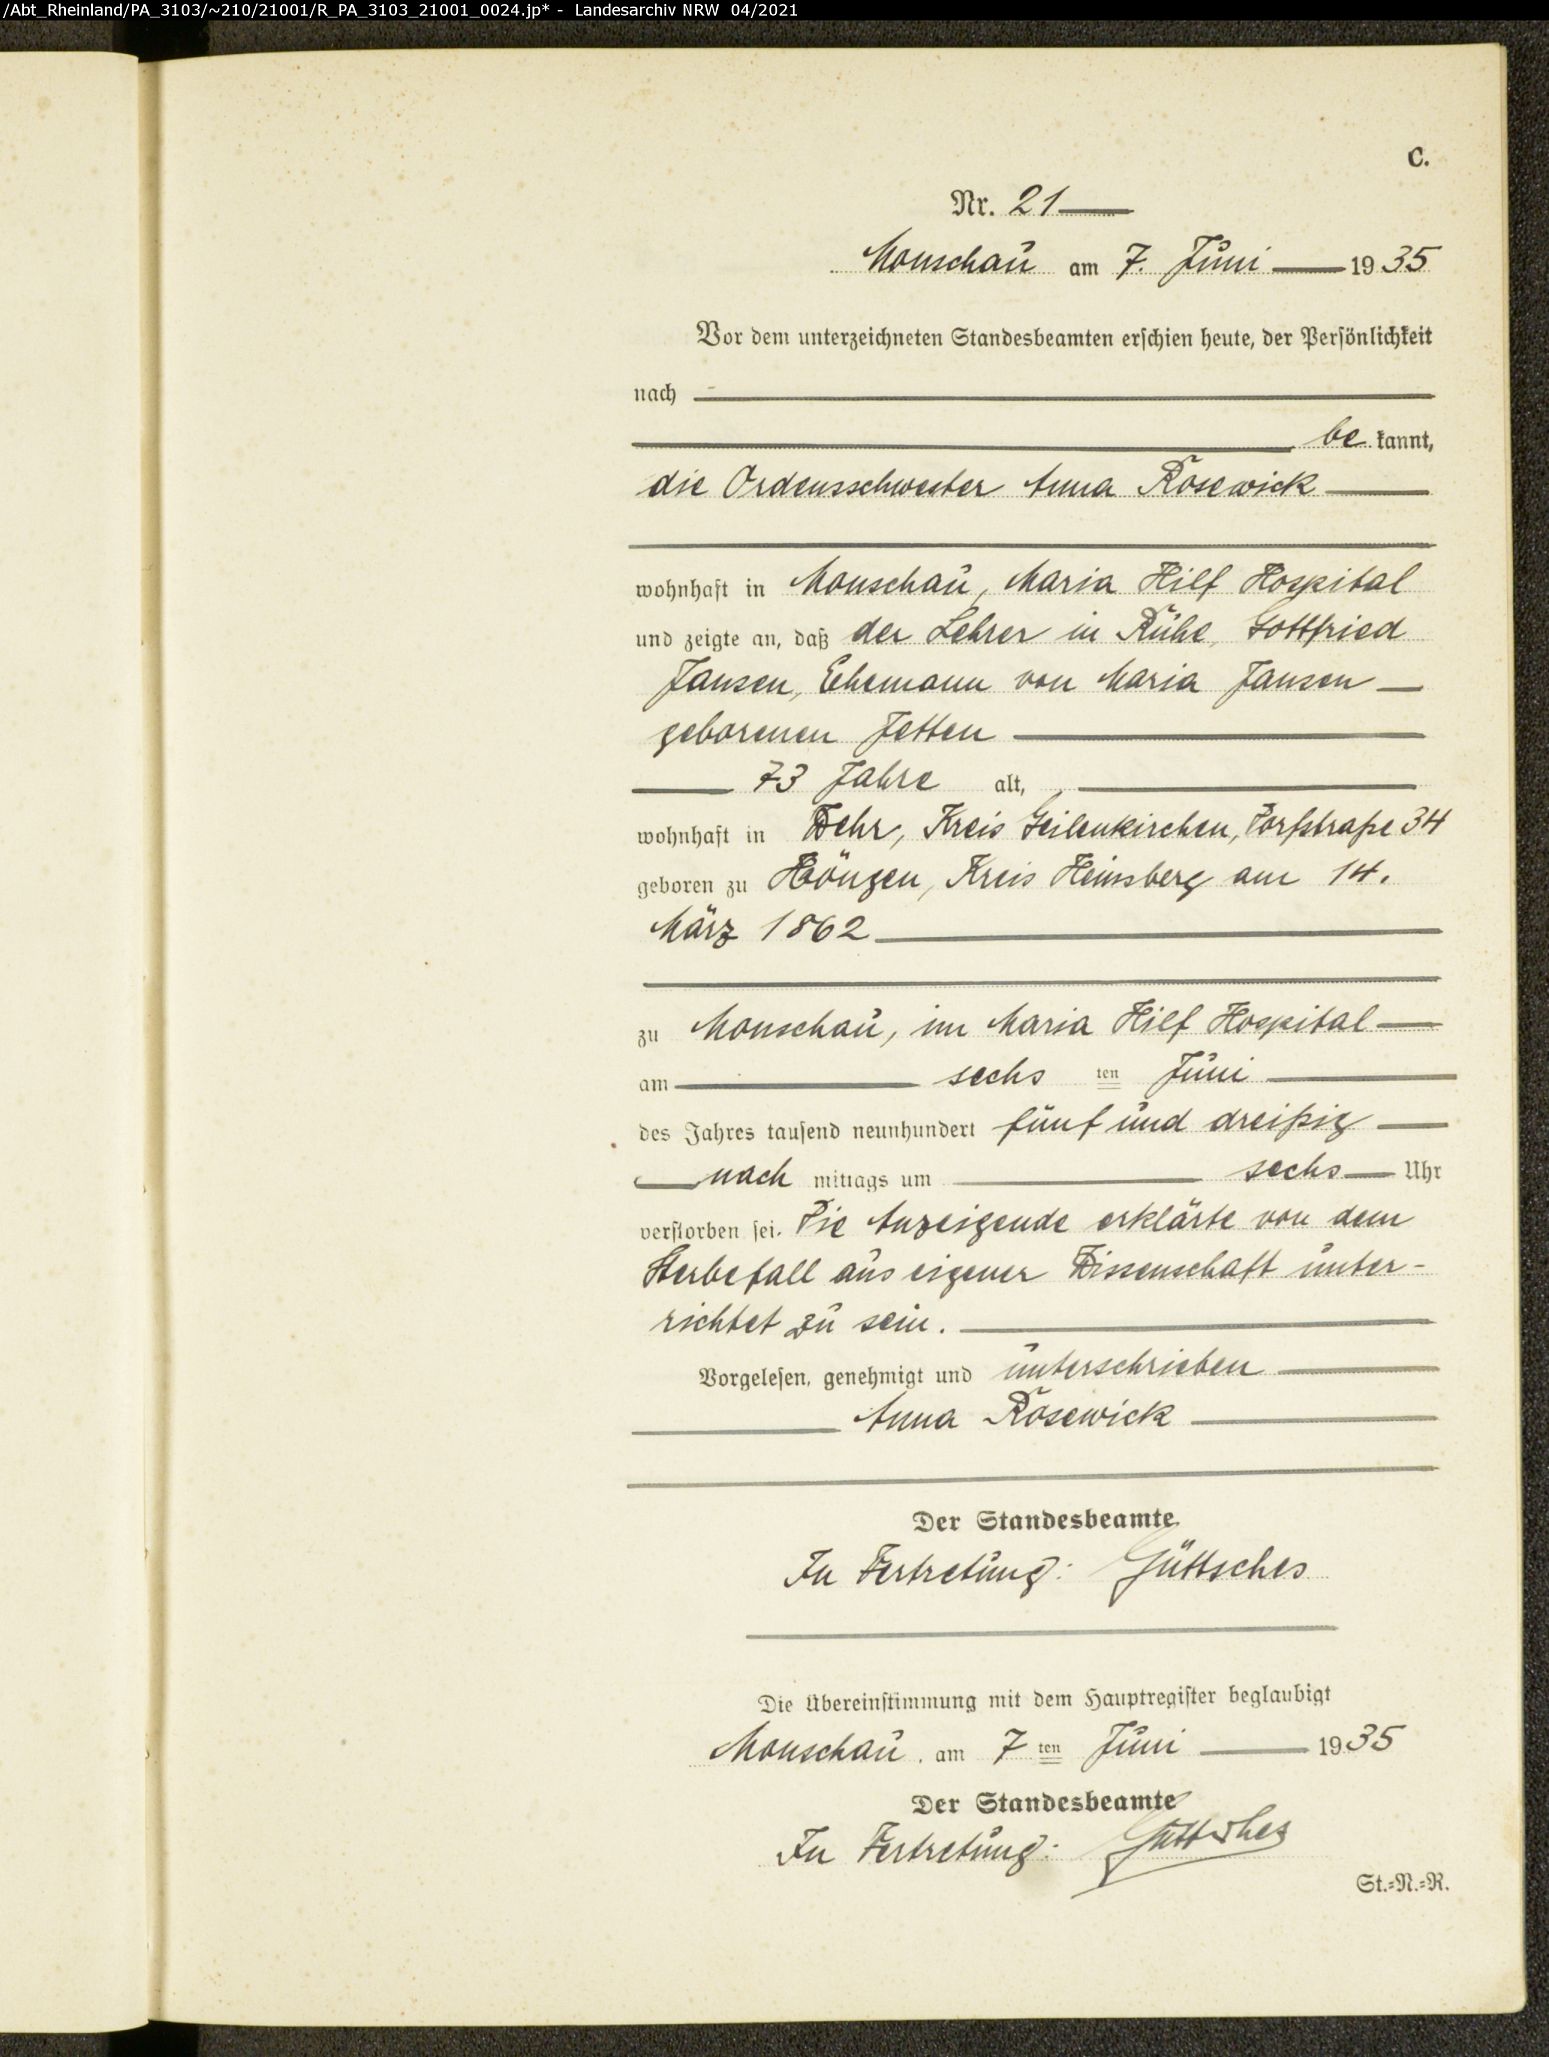 /Abt_Rheinland/PA_3103/~210/21001/R_PA_3103_21001_0024.jp* - Landesarchiv NRW 04/2021
C.
Nr. 21
Monschau am 7. Juni 1935
Vor dem unterzeichneten Standesbeamten erschien heute, der Persönlichkeit
nach
be kannt,
die Ordensschwester Anna Rosewick
wohnhaft in Monschau, Maria Hilf Hospital
und zeigte an, daß der Lehrer in Ruhe, Gottfried
Jansen, Ehemann von Maria Jansen
geborenen Jetten
73 Jahre alt,
wohnhaft in Wehr, Kreis Geilenkirchen, Dorfstraße 34
geboren zu Höngen, Kreis Heinsberg am 14.
März 1862
zu Monschau, im Maria Hilf Hospital
am sechs ten Juni
des Jahres tausend neunhundert fünf und dreißig
nach mittags um sechs Uhr
verstorben sei. Die Anzeigende erklärte von dem
Sterbefall aus eigener Wissenschaft unter-
richtet zu sein.
Vorgelesen, genehmigt und unterschrieben
Anna Rosewick
Der Standesbeamte
In Vertretung: Güttsches
Die Übereinstimmung mit dem Hauptregister beglaubigt
Monschau, am 7 ten Juni 1935
Der Standesbeamte
In Vertretung: Güttsches
St.=N.=R.